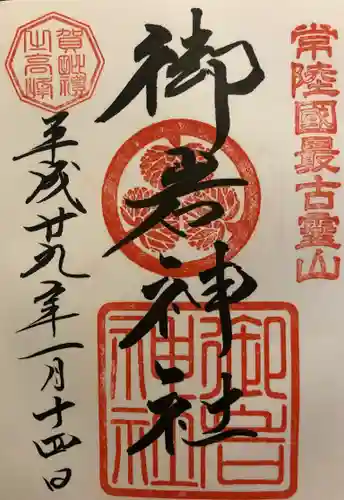 常陸國最古霊山
御岩神社
御岩神社
賀毗禮之高峰
平成廿九年一月十四日